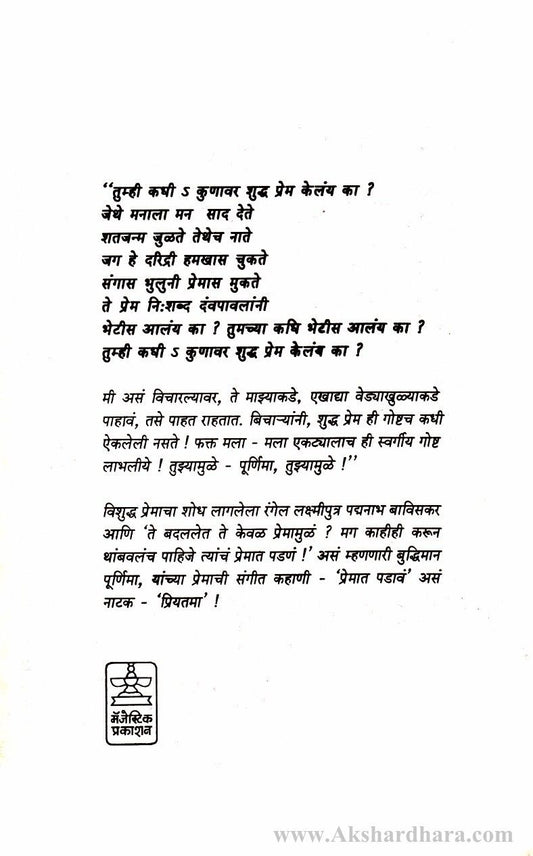 “तुम्ही कधी ऽ कुणावर शुद्ध प्रेम केलंय का ?
जेथे मनाला मन साद देते
शतजन्म जुळते तेथेच नाते
जग हे दरिद्री हमखास चुकते
संगास भुलुनी प्रेमास मुकते
ते प्रेम निःशब्द दंवपावलांनी
भेटीस आलंय का ? तुमच्या कधि भेटीस आलंय का ?
तुम्ही कधी ऽ कुणावर शुद्ध प्रेम केलंय का ?
मी असं विचारल्यावर, ते माझ्याकडे, एखाद्या वेड्याखुळ्याकडे
पाहावं, तसे पाहत राहतात. बिचाऱ्यांनी, शुद्ध प्रेम ही गोष्टच कधी
ऐकलेली नसते ! फक्त मला - मला एकट्यालाच ही स्वर्गीय गोष्ट
लाभलीये ! तुझ्यामुळे - पूर्णिमा, तुझ्यामुळे !”
विशुद्ध प्रेमाचा शोध लागलेला रंगेल लक्ष्मीपुत्र पद्मनाभ बाविसकर
आणि ‘ते बदललेत ते केवळ प्रेमामुळं ? मग काहीही करून
थांबवलंच पाहिजे त्यांचं प्रेमात पडणं !’ असं म्हणणारी बुद्धिमान
पूर्णिमा, यांच्या प्रेमाची संगीत कहाणी - ‘प्रेमात पडावं’ असं
नाटक - ‘प्रियतमा’ !
मॅजेस्टिक
प्रकाशन
www.Akshardhara.com